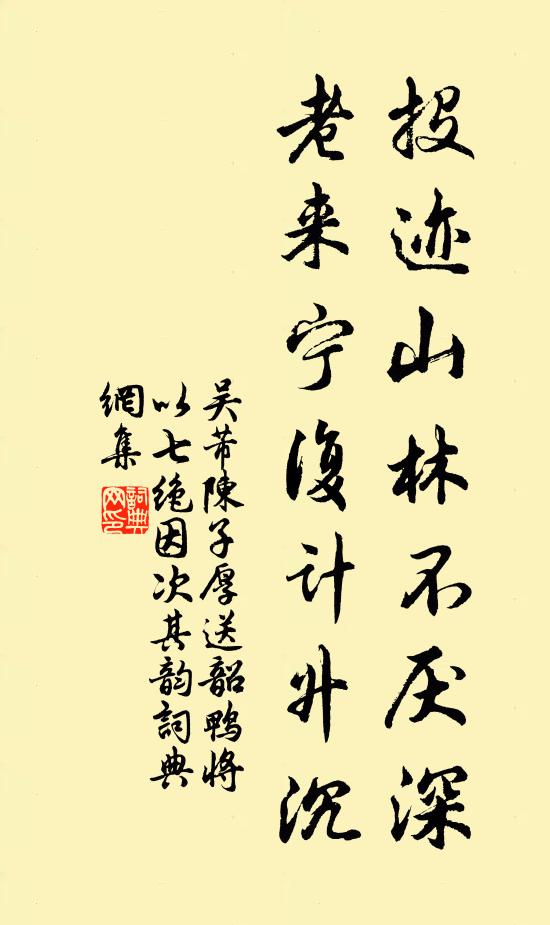 投迹山林不厌深
老来宁复计升沉
吴芾陳子厚送韶鴨将
以七绝因次其韵詞典
網集
詞典網印